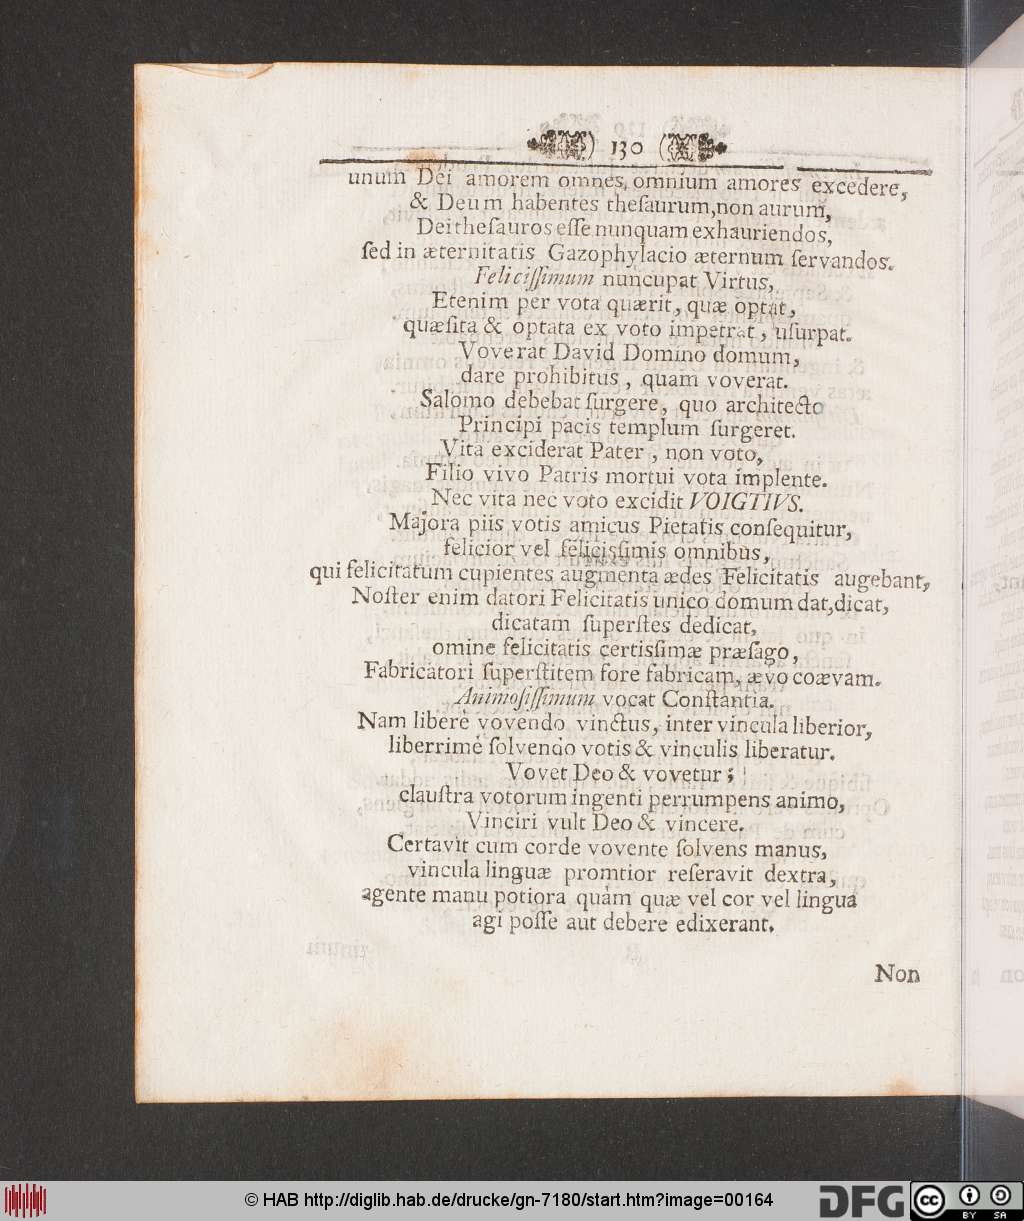 ) 130 (
unum Dei amorem omnes, omnium amores excedere,
& Deum habentes theſaurum, non aurum,
Dei theſauros eſſe nunquam exhauriendos,
ſed in æternitatis Gazophylacio æternum ſervandos.
Feliciſſimum nuncupat Virtus,
Etenim per vota quærit, quæ optat,
quæſita & optata ex voto impetrat, uſurpat.
Voverat David Domino domum,
dare prohibitus, quam voverat.
Salomo debebat ſurgere, quo architecto
Principi pacis templum ſurgeret.
Vita exciderat Pater, non voto,
Filio vivo Patris mortui vota implente.
Nec vita nec voto excidit VOIGTIVS.
Majora piis votis amicus Pietatis conſequitur,
felicior vel feliciſſimis omnibus,
qui felicitatum cupientes augmenta ædes Felicitatis augebant,
Noſter enim datori Felicitatis unico domum dat, dicat,
dicatam ſuperſtes dedicat,
omine felicitatis certiſſimæ præſago,
Fabricatori ſuperſtitem fore fabricam, ævo coævam.
Animoſiſſimum vocat Conſtantia.
Nam liberè vovendo vinctus, inter vincula liberior,
liberrimè ſolvendo votis & vinculis liberatur.
Vovet Deo & vovetur;
clauſtra votorum ingenti perrumpens animo,
Vinciri vult Deo & vincere.
Certavit cum corde vovente ſolvens manus,
vincula linguæ promtior reſeravit dextra,
agente manu potiora quàm quæ vel cor vel lingua
agi poſſe aut debere edixerant.
Non
© HAB http://diglib.hab.de/drucke/gn-7180/start.htm?image=00164
DFG
cc BY SA